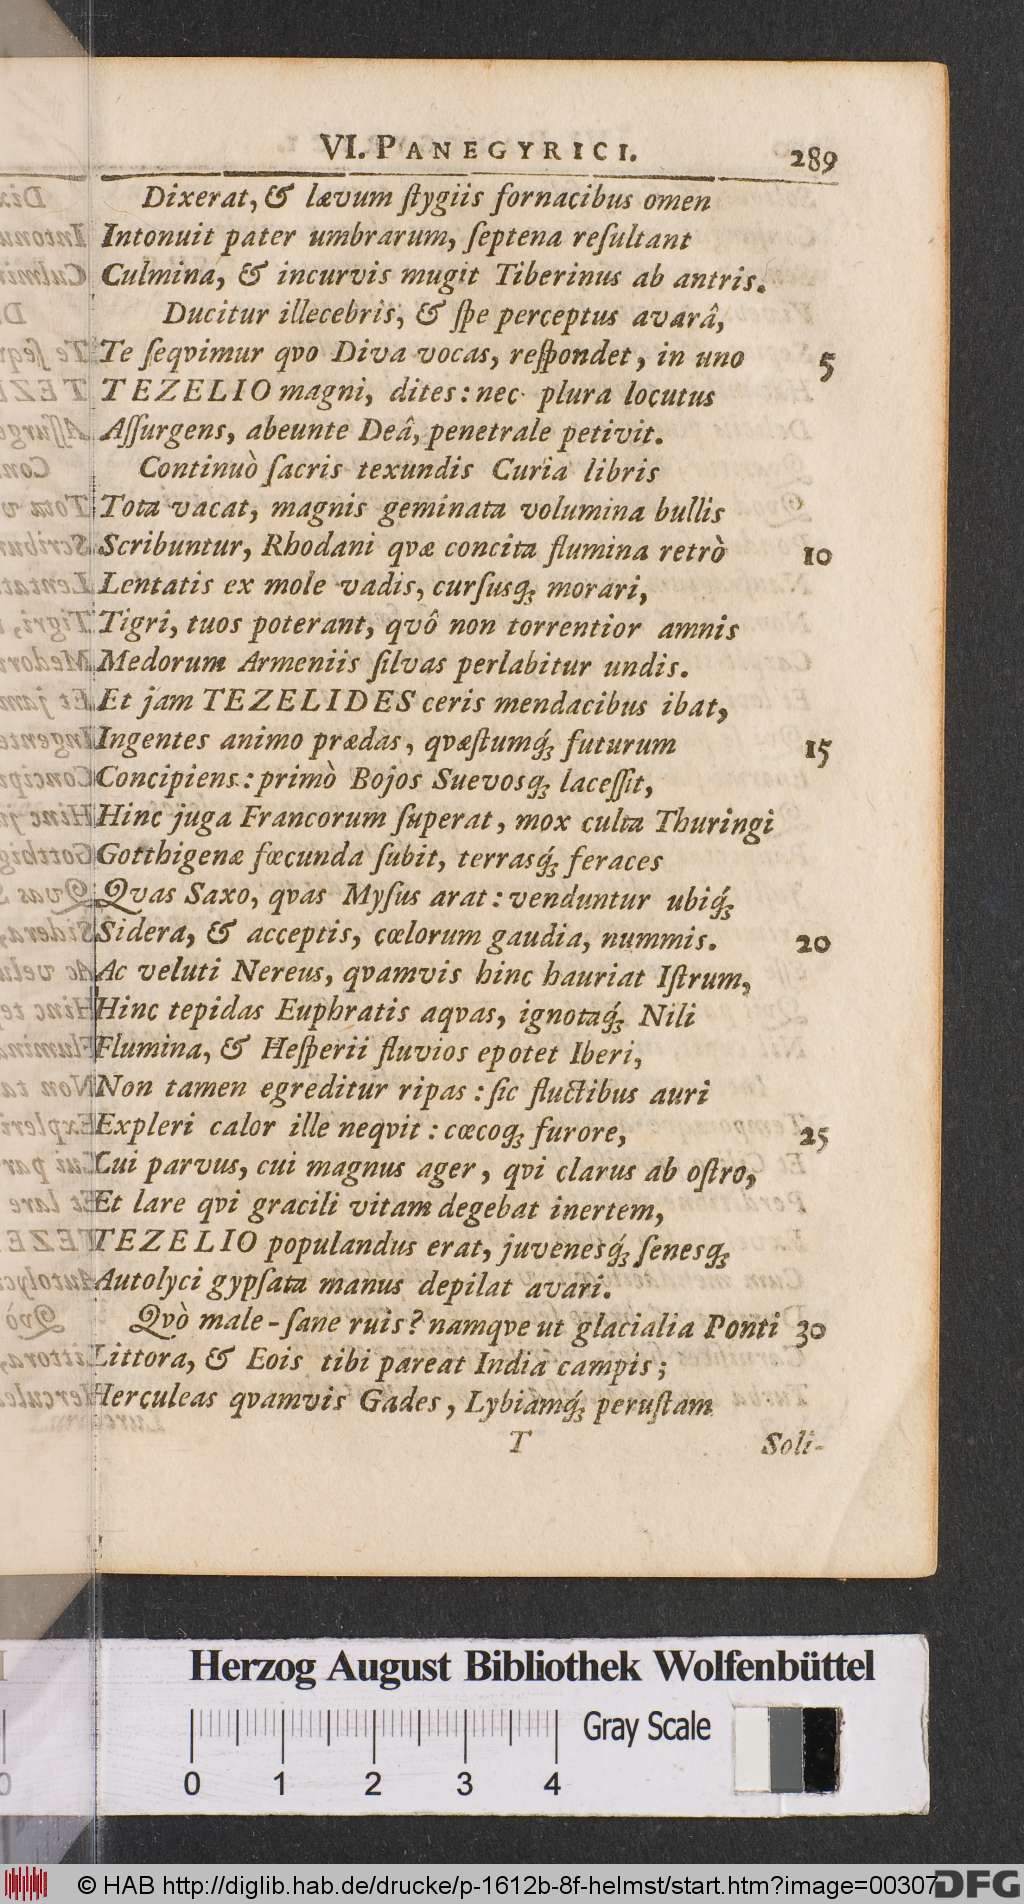 VI. PANEGYRICI. 289
Dixerat, & lævum ſtygiis fornacibus omen
Intonuit pater umbrarum, ſeptena reſultant
Culmina, & incurvis mugit Tiberinus ab antris.
Ducitur illecebris, & ſpe perceptus avarâ,
Te ſeqvimur qvo Diva vocas, reſpondet, in uno 5
TEZELIO magni, dites: nec plura locutus
Aſſurgens, abeunte Deâ, penetrale petivit.
Continuò ſacris texundis Curia libris
Tota vacat, magnis geminata volumina bullis
Scribuntur, Rhodani qvæ concita flumina retrò 10
Lentatis ex mole vadis, curſusq; morari,
Tigri, tuos poterant, qvô non torrentior amnis
Medorum Armeniis ſilvas perlabitur undis.
Et jam TEZELIDES ceris mendacibus ibat,
Ingentes animo prædas, qvæſtumq́; futurum 15
Concipiens: primò Bojos Suevosq; laceſſit,
Hinc juga Francorum ſuperat, mox culta Thuringi
Gotthigenæ fœcunda ſubit, terrasq́; feraces
Qvas Saxo, qvas Myſus arat: venduntur ubiq́;
Sidera, & acceptis, cœlorum gaudia, nummis. 20
Ac veluti Nereus, qvamvis hinc hauriat Iſtrum,
Hinc tepidas Euphratis aqvas, ignotaq́; Nili
Flumina, & Heſperii fluvios epotet Iberi,
Non tamen egreditur ripas: ſic fluctibus auri
Expleri calor ille neqvit: cœcoq; furore, 25
Cui parvus, cui magnus ager, qvi clarus ab oſtro,
Et lare qvi gracili vitam degebat inertem,
TEZELIO populandus erat, juvenesq́; ſenesq;
Autolyci gypſata manus depilat avari.
Qvò male-ſane ruis? namqve ut glacialia Ponti 30
Littora, & Eois tibi pareat India campis;
Herculeas qvamvis Gades, Lybiamq́; peruſtam
T Soli-
Herzog August Bibliothek Wolfenbüttel
Gray Scale
0 1 2 3 4
© HAB http://diglib.hab.de/drucke/p-1612b-8f-helmst/start.htm?image=00307
DFG